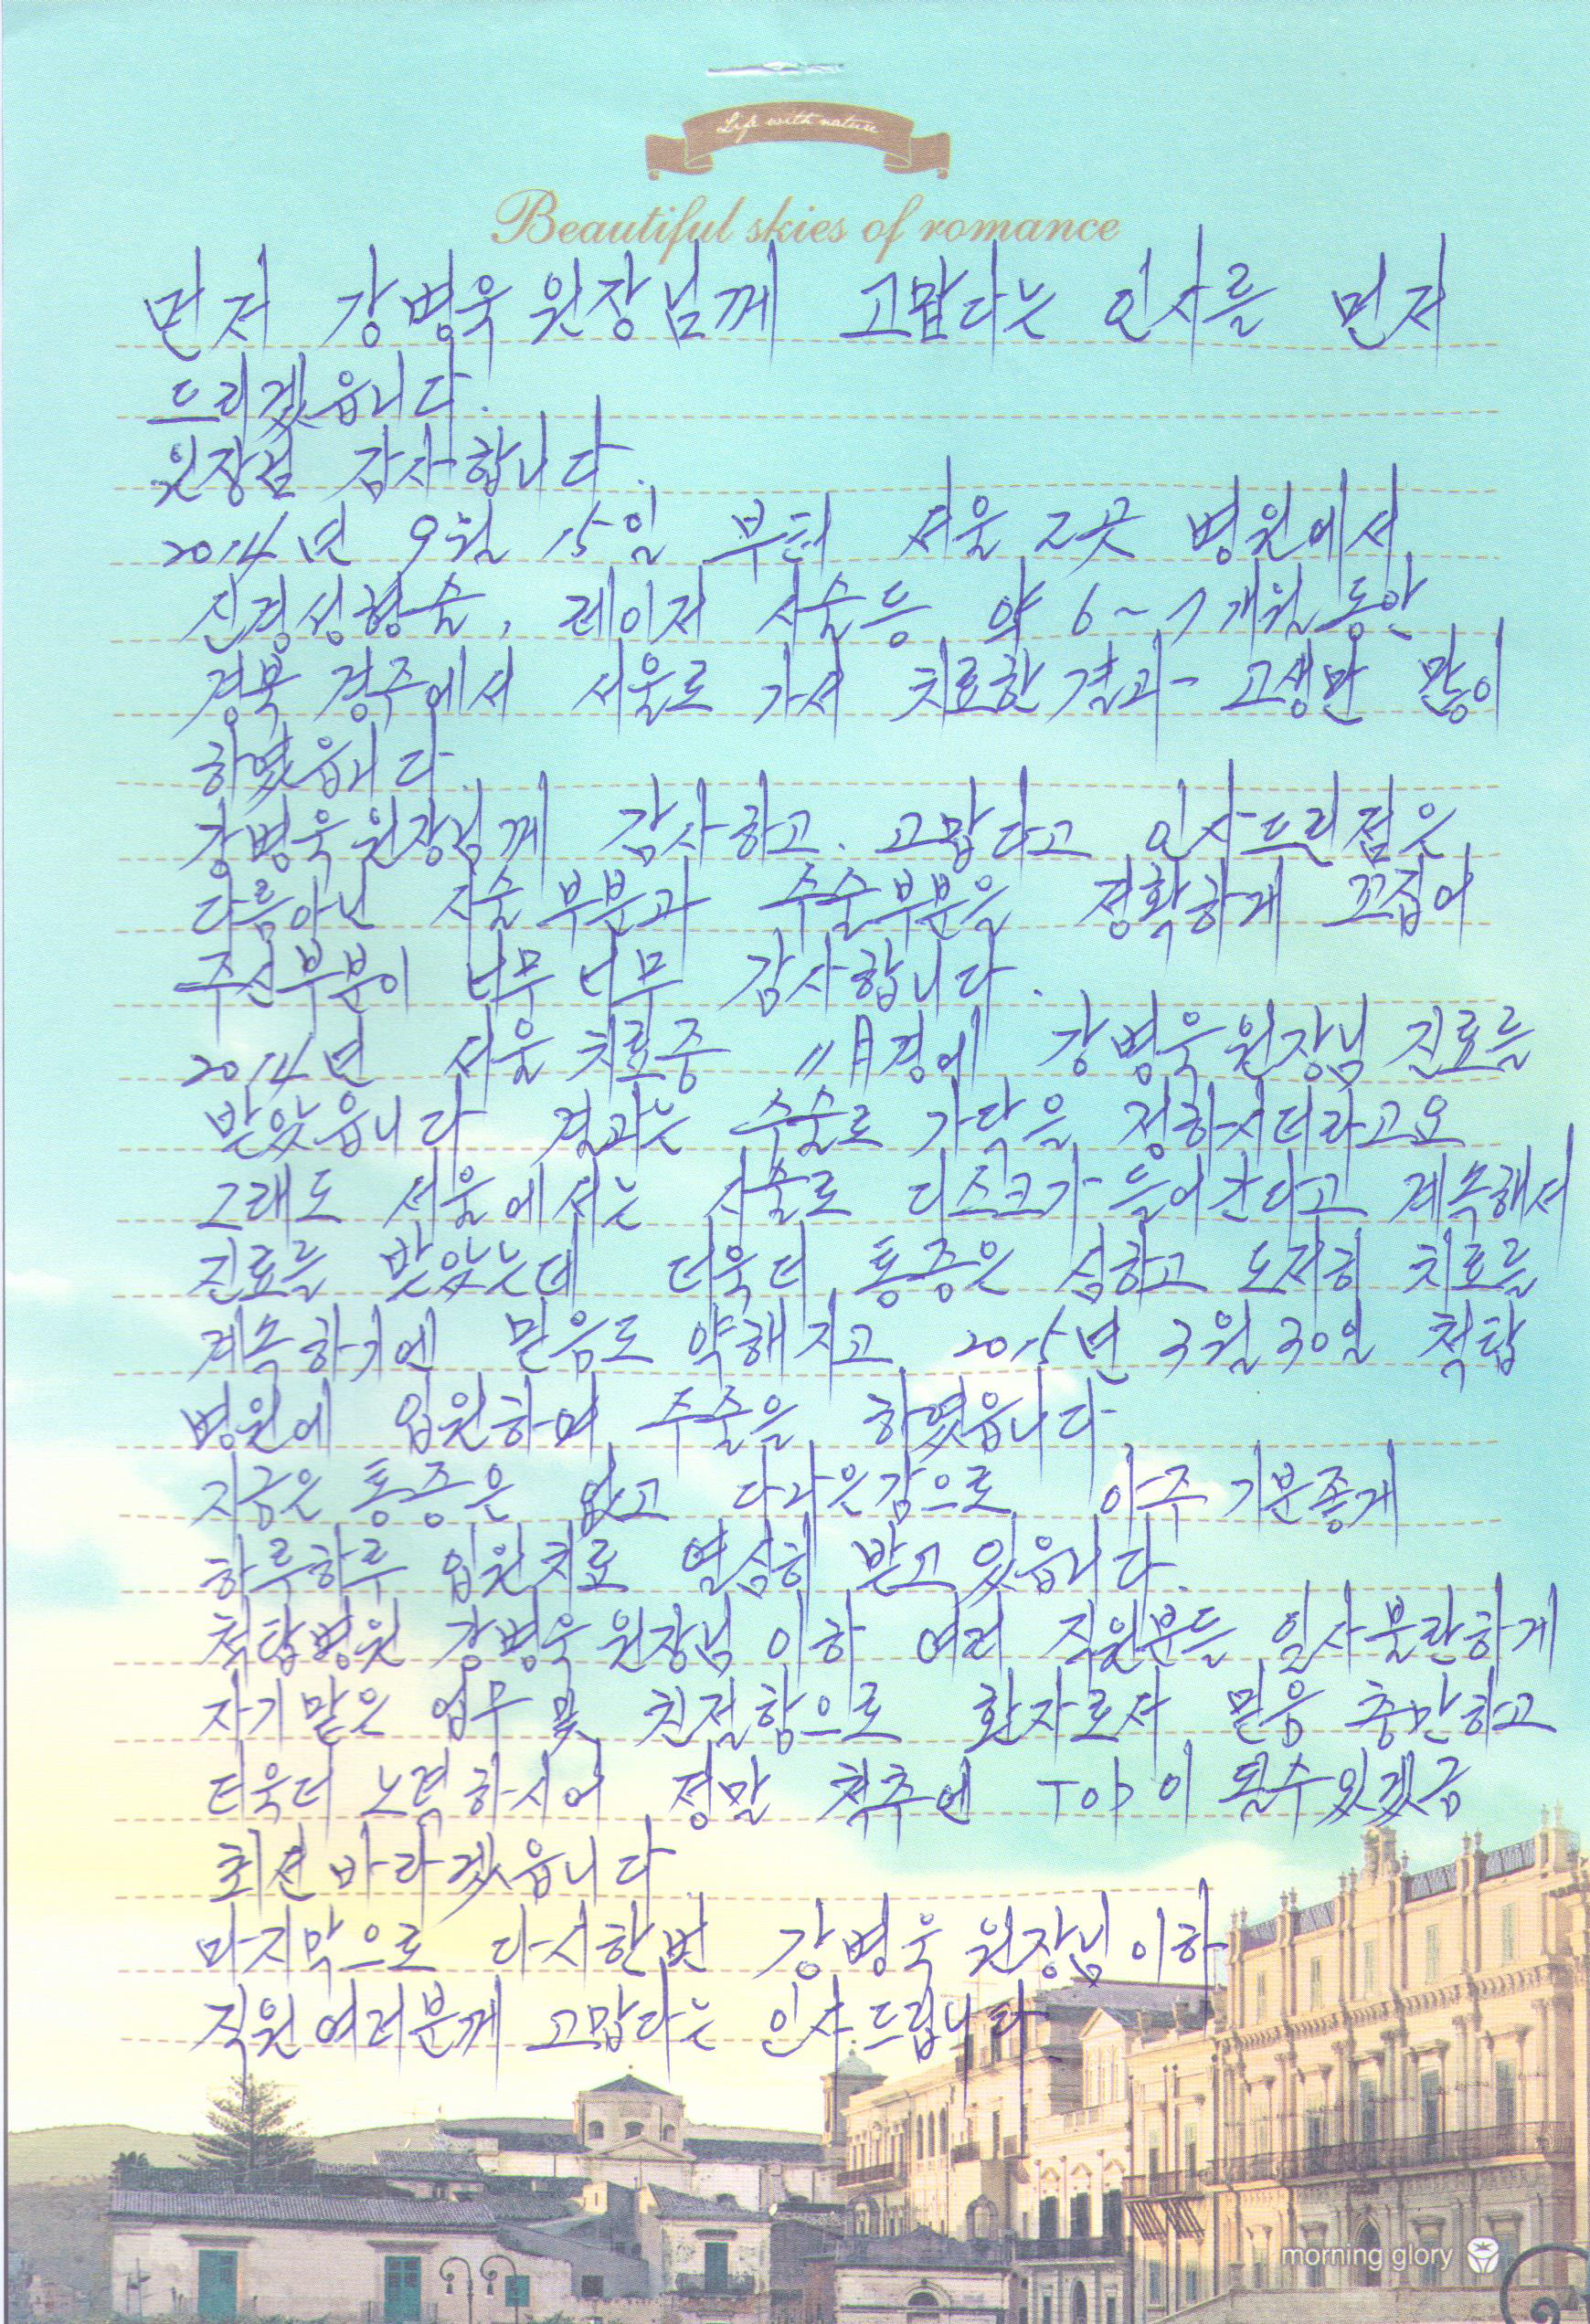 Life with nature
Beautiful skies of romance
먼저 강병욱 원장님께 고맙다는 인사를 먼저
드리겠읍니다.
원장님 감사합니다.
2014년 9월 15일 부터 서울 2곳 병원에서
신경성형술, 레이저 시술등 약 6~7개월 동안
경북 경주에서 서울로 가서 치료한 결과 고생만 많이
하였읍니다.
강병욱 원장님께 감사하고. 고맙다고 인사드린점은
다름아닌 시술 부분과 수술부분을 정확하게 꼬집어
주신부분이 너무 너무 감사합니다.
2014년 서울 치료중 11月경에 강병욱 원장님 진료를
받았읍니다 결과는 수술로 가닥을 정하시더라고요
그래도 서울에서는 시술로 디스크가 들어간다고 계속해서
진료를 받았는데 더욱더 통증은 심하고 도저히 치료를
계속하기엔 믿음도 약해지고 2015년 3월 30일 척탑
병원에 입원하여 수술을 하였읍니다.
지금은 통증은 없고 다나은감으로 아주 기분좋게
하루하루 입원치료 열심히 받고 있읍니다.
척탑병원 강병욱 원장님 이하 여러 직원분들 일사불란하게
자기맡은 업무 및 친절함으로 환자로서 믿음 충만하고
더욱더 노력하시어 정말 척추엔 TOP이 될수있겠금
최선 바라겠읍니다
마지막으로 다시한번 강병욱 원장님 이하
직원여러분께 고맙다는 인사드립니다
morning glory